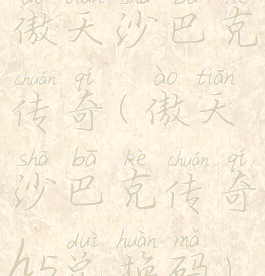 ào tiān shā bā kè
傲天沙巴克
chuán qí ào tiān
传奇(傲天
shā bā kè chuán qí
沙巴克传奇
duì huàn mǎ
h5兑换码)